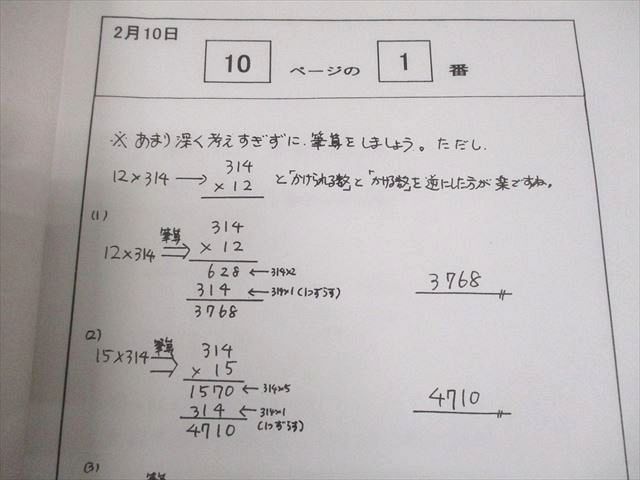 2月10日
10 ページの 1 番
※ あまり深く考えすぎずに、筆算をしましょう。ただし、
12×314 → 314 と「かけられる数」と「かける数」を逆にした方が楽ですね。
× 12
(1)
12×314 筆算 314
× 12
628 ← 314×2
314 ← 314×1 (1つずらす)
3768
3768
(2)
15×314 筆算 314
× 15
1570 ← 314×5
314 ← 314×1 (1つずらす)
4710
4710
(3)
筆算